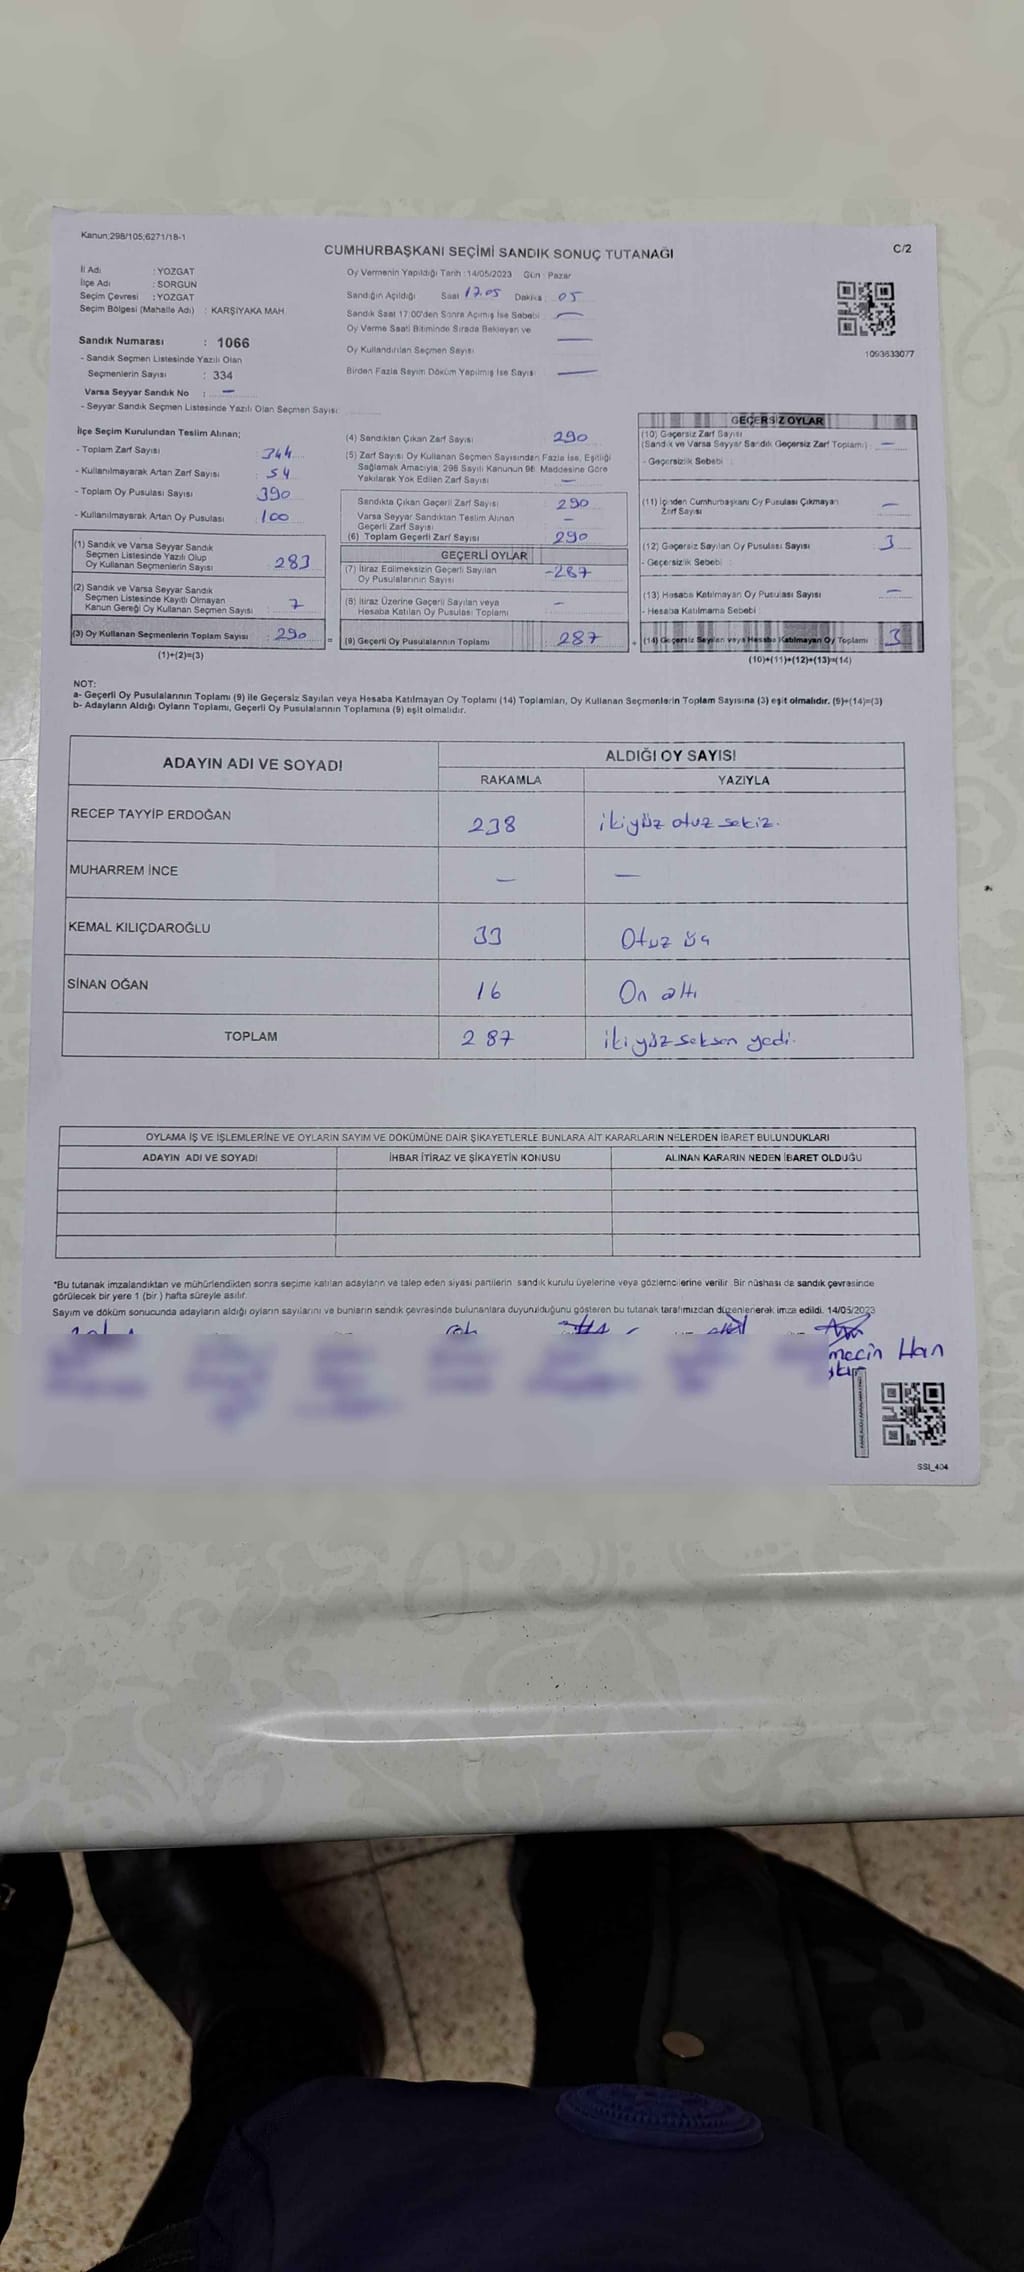 Kanun;298/105;6271/18-1
CUMHURBAŞKANI SEÇİMİ SANDIK SONUÇ TUTANAĞI
C/2
İl Adı : YOZGAT
İlçe Adı : SORGUN
Seçim Çevresi : YOZGAT
Seçim Bölgesi (Mahalle Adı) : KARŞIYAKA MAH
Sandık Numarası : 1066
- Sandık Seçmen Listesinde Yazılı Olan
Seçmenlerin Sayısı : 334
Varsa Seyyar Sandık No : —
- Seyyar Sandık Seçmen Listesinde Yazılı Olan Seçmen Sayısı:
Oy Vermenin Yapıldığı Tarih :14/05/2023 Gün : Pazar
Sandığın Açıldığı Saat 17.05 Dakika : 05
Sandık Saat 17:00'den Sonra Açılmış İse Sebebi —
Oy Verme Saati Bitiminde Sırada Bekleyen ve —
Oy Kullandırılan Seçmen Sayısı
Birden Fazla Sayım Döküm Yapılmış İse Sayısı —
1093633077
İlçe Seçim Kurulundan Teslim Alınan;
- Toplam Zarf Sayısı : 344
- Kullanılmayarak Artan Zarf Sayısı : 54
- Toplam Oy Pusulası Sayısı 390
- Kullanılmayarak Artan Oy Pusulası : 100
(1) Sandık ve Varsa Seyyar Sandık
Seçmen Listesinde Yazılı Olup
Oy Kullanan Seçmenlerin Sayısı : 283
(2) Sandık ve Varsa Seyyar Sandık
Seçmen Listesinde Kayıtlı Olmayan
Kanun Gereği Oy Kullanan Seçmen Sayısı : 7
(3) Oy Kullanan Seçmenlerin Toplam Sayısı : 290 =
(1)+(2)=(3)
(4) Sandıktan Çıkan Zarf Sayısı 290
(5) Zarf Sayısı Oy Kullanan Seçmen Sayısından Fazla İse, Eşitliği
Sağlamak Amacıyla, 298 Sayılı Kanunun 98. Maddesine Göre
Yakılarak Yok Edilen Zarf Sayısı —
Sandıkta Çıkan Geçerli Zarf Sayısı 290
Varsa Seyyar Sandıktan Teslim Alınan
Geçerli Zarf Sayısı —
(6) Toplam Geçerli Zarf Sayısı 290
GEÇERLİ OYLAR
(7) İtiraz Edilmeksizin Geçerli Sayılan
Oy Pusulalarının Sayısı -287
(8) İtiraz Üzerine Geçerli Sayılan veya
Hesaba Katılan Oy Pusulası Toplamı —
(9) Geçerli Oy Pusulalarının Toplamı 287 +
GEÇERSİZ OYLAR
(10) Geçersiz Zarf Sayısı
(Sandık ve Varsa Seyyar Sandık Geçersiz Zarf Toplamı) : —
- Geçersizlik Sebebi :
(11) İçinden Cumhurbaşkanı Oy Pusulası Çıkmayan
Zarf Sayısı —
(12) Geçersiz Sayılan Oy Pusulası Sayısı 3
- Geçersizlik Sebebi :
(13) Hesaba Katılmayan Oy Pusulası Sayısı —
- Hesaba Katılmama Sebebi :
(14) Geçersiz Sayılan veya Hesaba Katılmayan Oy Toplamı : 3
(10)+(11)+(12)+(13)=(14)
NOT:
a- Geçerli Oy Pusulalarının Toplamı (9) ile Geçersiz Sayılan veya Hesaba Katılmayan Oy Toplamı (14) Toplamları, Oy Kullanan Seçmenlerin Toplam Sayısına (3) eşit olmalıdır. (9)+(14)=(3)
b- Adayların Aldığı Oyların Toplamı, Geçerli Oy Pusulalarının Toplamına (9) eşit olmalıdır.
ADAYIN ADI VE SOYADI ALDIĞI OY SAYISI
RAKAMLA YAZIYLA
RECEP TAYYİP ERDOĞAN 238 ikiyüz otuz sekiz.
MUHARREM İNCE — —
KEMAL KILIÇDAROĞLU 33 Otuz üç
SİNAN OĞAN 16 On altı
TOPLAM 287 ikiyüz seksen yedi.
OYLAMA İŞ VE İŞLEMLERİNE VE OYLARIN SAYIM VE DÖKÜMÜNE DAİR ŞİKAYETLERLE BUNLARA AİT KARARLARIN NELERDEN İBARET BULUNDUKLARI
ADAYIN ADI VE SOYADI İHBAR İTİRAZ VE ŞİKAYETİN KONUSU ALINAN KARARIN NEDEN İBARET OLDUĞU
*Bu tutanak imzalandıktan ve mühürlendikten sonra seçime katılan adayların ve talep eden siyasi partilerin sandık kurulu üyelerine veya gözlemcilerine verilir. Bir nüshası da sandık çevresinde
görülecek bir yere 1 (bir) hafta süreyle asılır.
Sayım ve döküm sonucunda adayların aldığı oyların sayılarını ve bunların sandık çevresinde bulunanlara duyurulduğunu gösteren bu tutanak tarafımızdan düzenlenerek imza edildi. 14/05/2023
Han
SSI_404